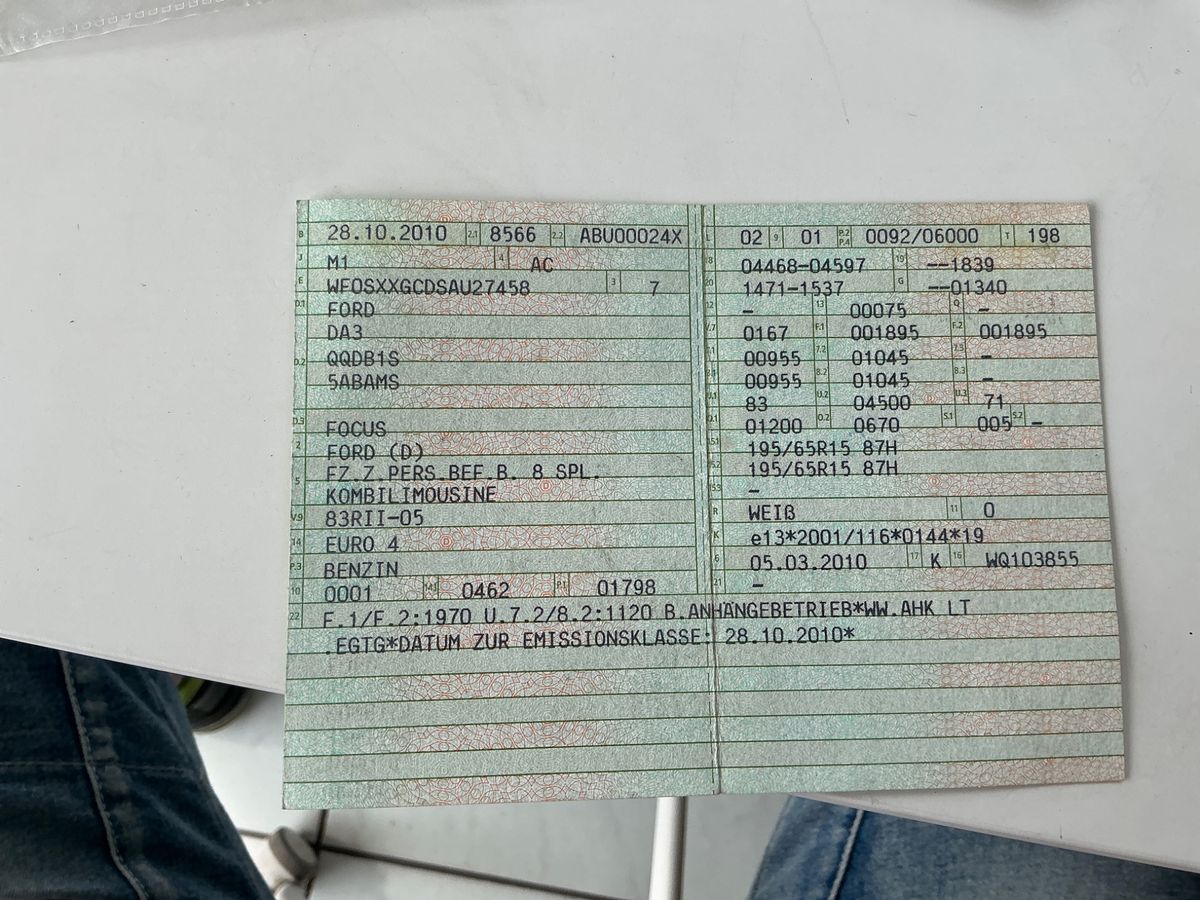 B 28.10.2010 2.1 8566 2.2 ABU00024X
J M1 4 AC
E WF0SXXGCDSAU27458 3 7
D.1 FORD
DA3
D.2 QQDB1S
5ABAMS
D.3 FOCUS
2 FORD (D)
5 FZ.Z.PERS.BEF.B. 8 SPL.
KOMBILIMOUSINE
V.9 83RII-05
14 EURO 4
P.3 BENZIN
10 0001 14.1 0462 P.1 01798
L 02 9 01 P.2 P.4 0092/06000 T 198
18 04468-04597 19 --1839
20 1471-1537 G --01340
12 - 13 00075 Q -
V.7 0167 F.1 001895 F.2 001895
7.1 00955 7.2 01045 7.3 -
8.1 00955 8.2 01045 8.3 -
U.1 83 U.2 04500 U.3 71
O.1 01200 O.2 0670 S.1 005 S.2 -
15.1 195/65R15 87H
15.2 195/65R15 87H
15.3 -
R WEIß 11 0
K e13*2001/116*0144*19
6 05.03.2010 17 K 16 WQ103855
21 -
22 F.1/F.2:1970 U.7.2/8.2:1120 B.ANHÄNGEBETRIEB*WW.AHK LT
.EGTG*DATUM ZUR EMISSIONSKLASSE: 28.10.2010*